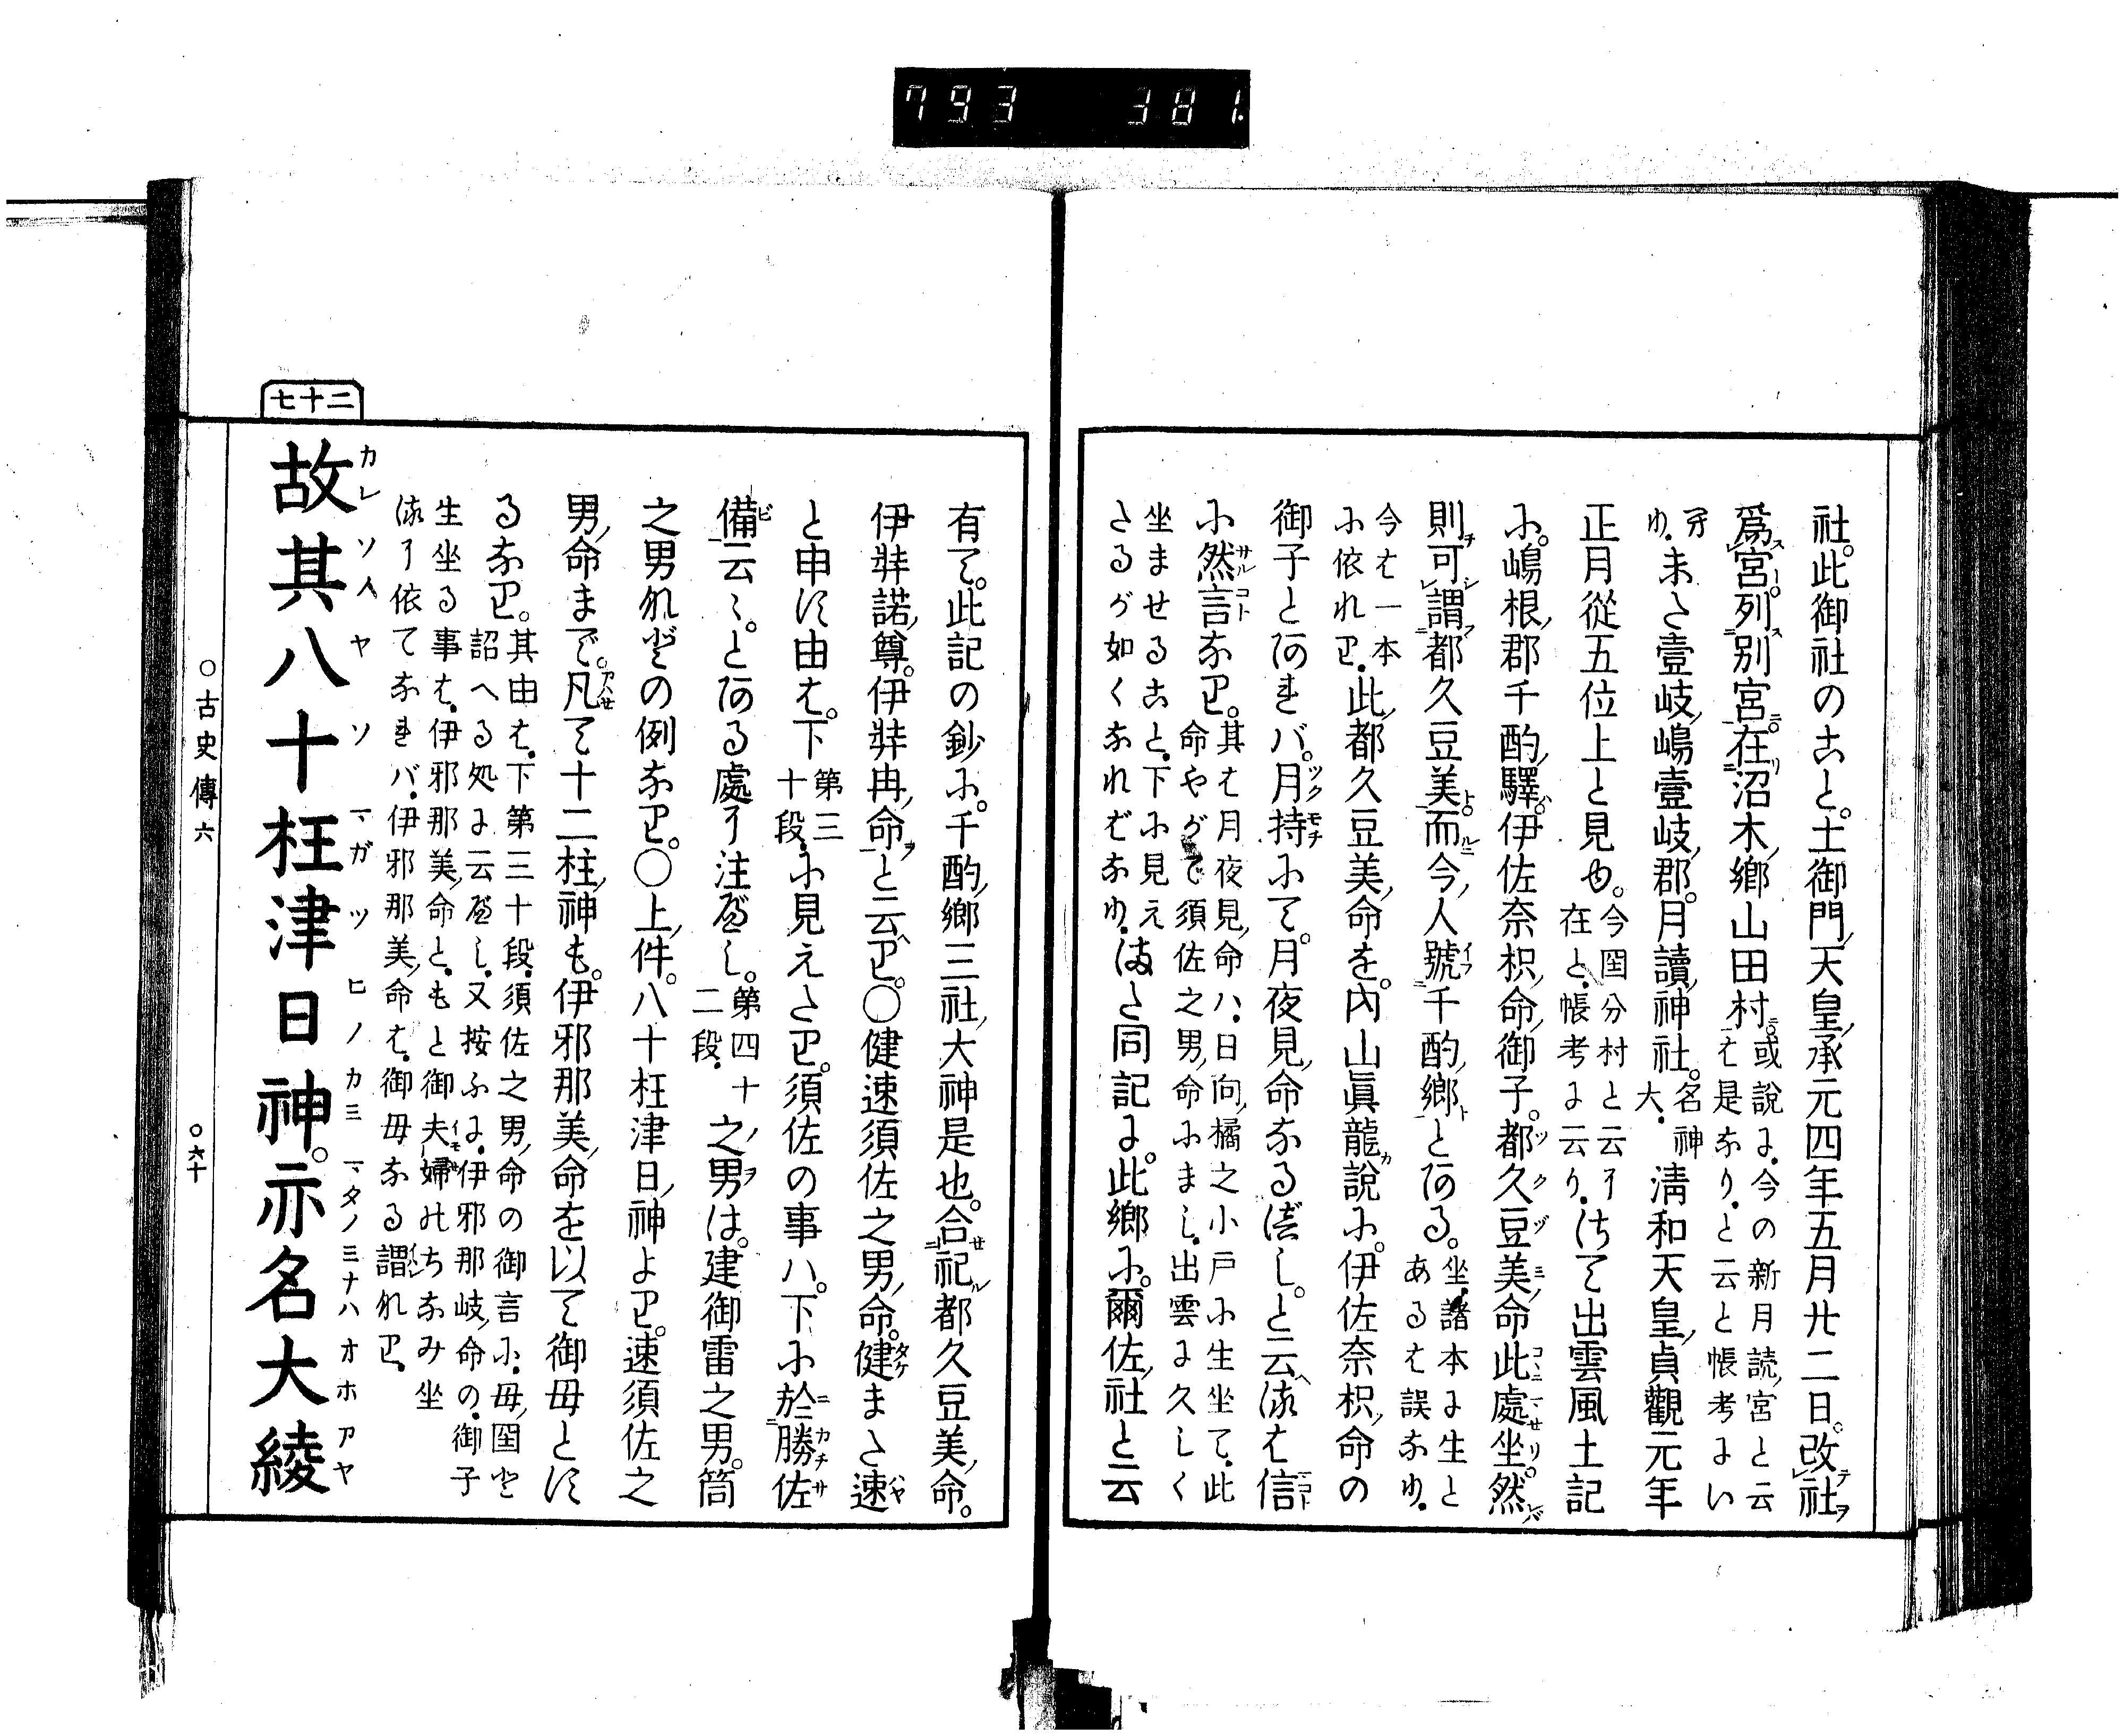 793 381
社。此御社のこと。土御門天皇、承元四年五月廿二日。改社
爲宮。列別宮。在沼木鄕山田村。或說に、今の新月読宮と云
は是なり、と云と帳考にい
へり。未た壹岐嶋壹岐郡。月讀神社。名神大。淸和天皇、貞觀元年
正月從五位上と見ゆ。今国分村と云に
在と、帳考に云り。はて出雲風土記
に。嶋根郡千酌驛。伊佐奈枳命御子。都久豆美命此處坐。然
則可謂都久豆美而。今人號千酌鄕とある。坐、諸本に生と
あるは誤なり。
今は一本
に依れり。此都久豆美命を。内山眞龍說に。伊佐奈枳命の
御子とあれバ。月持にて。月夜見命なるべし。と云へるは信
に然言なり。其は月夜見命ハ、日向橘之小戸に生坐て、此
命やがて須佐之男命にまし、出雲に久しく
坐ませること、下に見え
たるが如くなればなり。また同記に。此鄕に。爾佐社と云
有て。此記の鈔に。千酌鄕三社大神是也。合祀都久豆美命。
伊弉諾尊。伊弉冉命と云り。○健速須佐之男命。健また速
と申す由は。下第三
十段に見えたり。須佐の事ハ。下に於勝佐
備云〻。とある處に注べし。第四十
二段。之男は。建御雷之男。筒
之男などの例なり。○上件。八十枉津日神より。速須佐之
男命まで。凡て十二柱神も。伊邪那美命を以て御母とす
るなり。其由は、下第三十段、須佐之男命の御言に、母国と
詔へる処に云べし、又按ふに、伊邪那岐命の、御子
生坐る事は、伊邪那美命と、もと御夫婦のちなみ坐
るに依てなれバ、伊邪那美命は、御母なる謂なり。
七十二
故其八十枉津日神。亦名大綾
○古史傳六
○六十